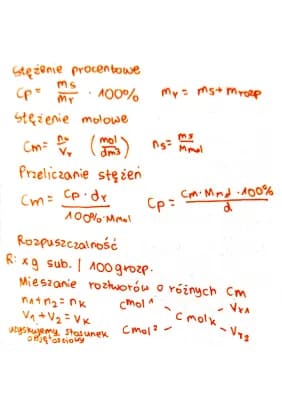 Stężenie procentowe
Cp = ms/mr · 100%   mr = ms + mrozp
Stężenie molowe
Cm = ns/Vr (mol/dm3)   ns = ms/Mmol
Przeliczanie stężeń
Cm = Cp · dr / 100% · Mmol   Cp = Cm · Mmol · 100% / d
Rozpuszczalność
R: x g sub. / 100g rozp.
Mieszanie roztworów o różnych Cm
n1 + n2 = nk   Cmol1 — Vr1
V1 + V2 = Vk   Cmolk
uzyskujemy stosunek   Cmol2 — Vr2
objętościowy